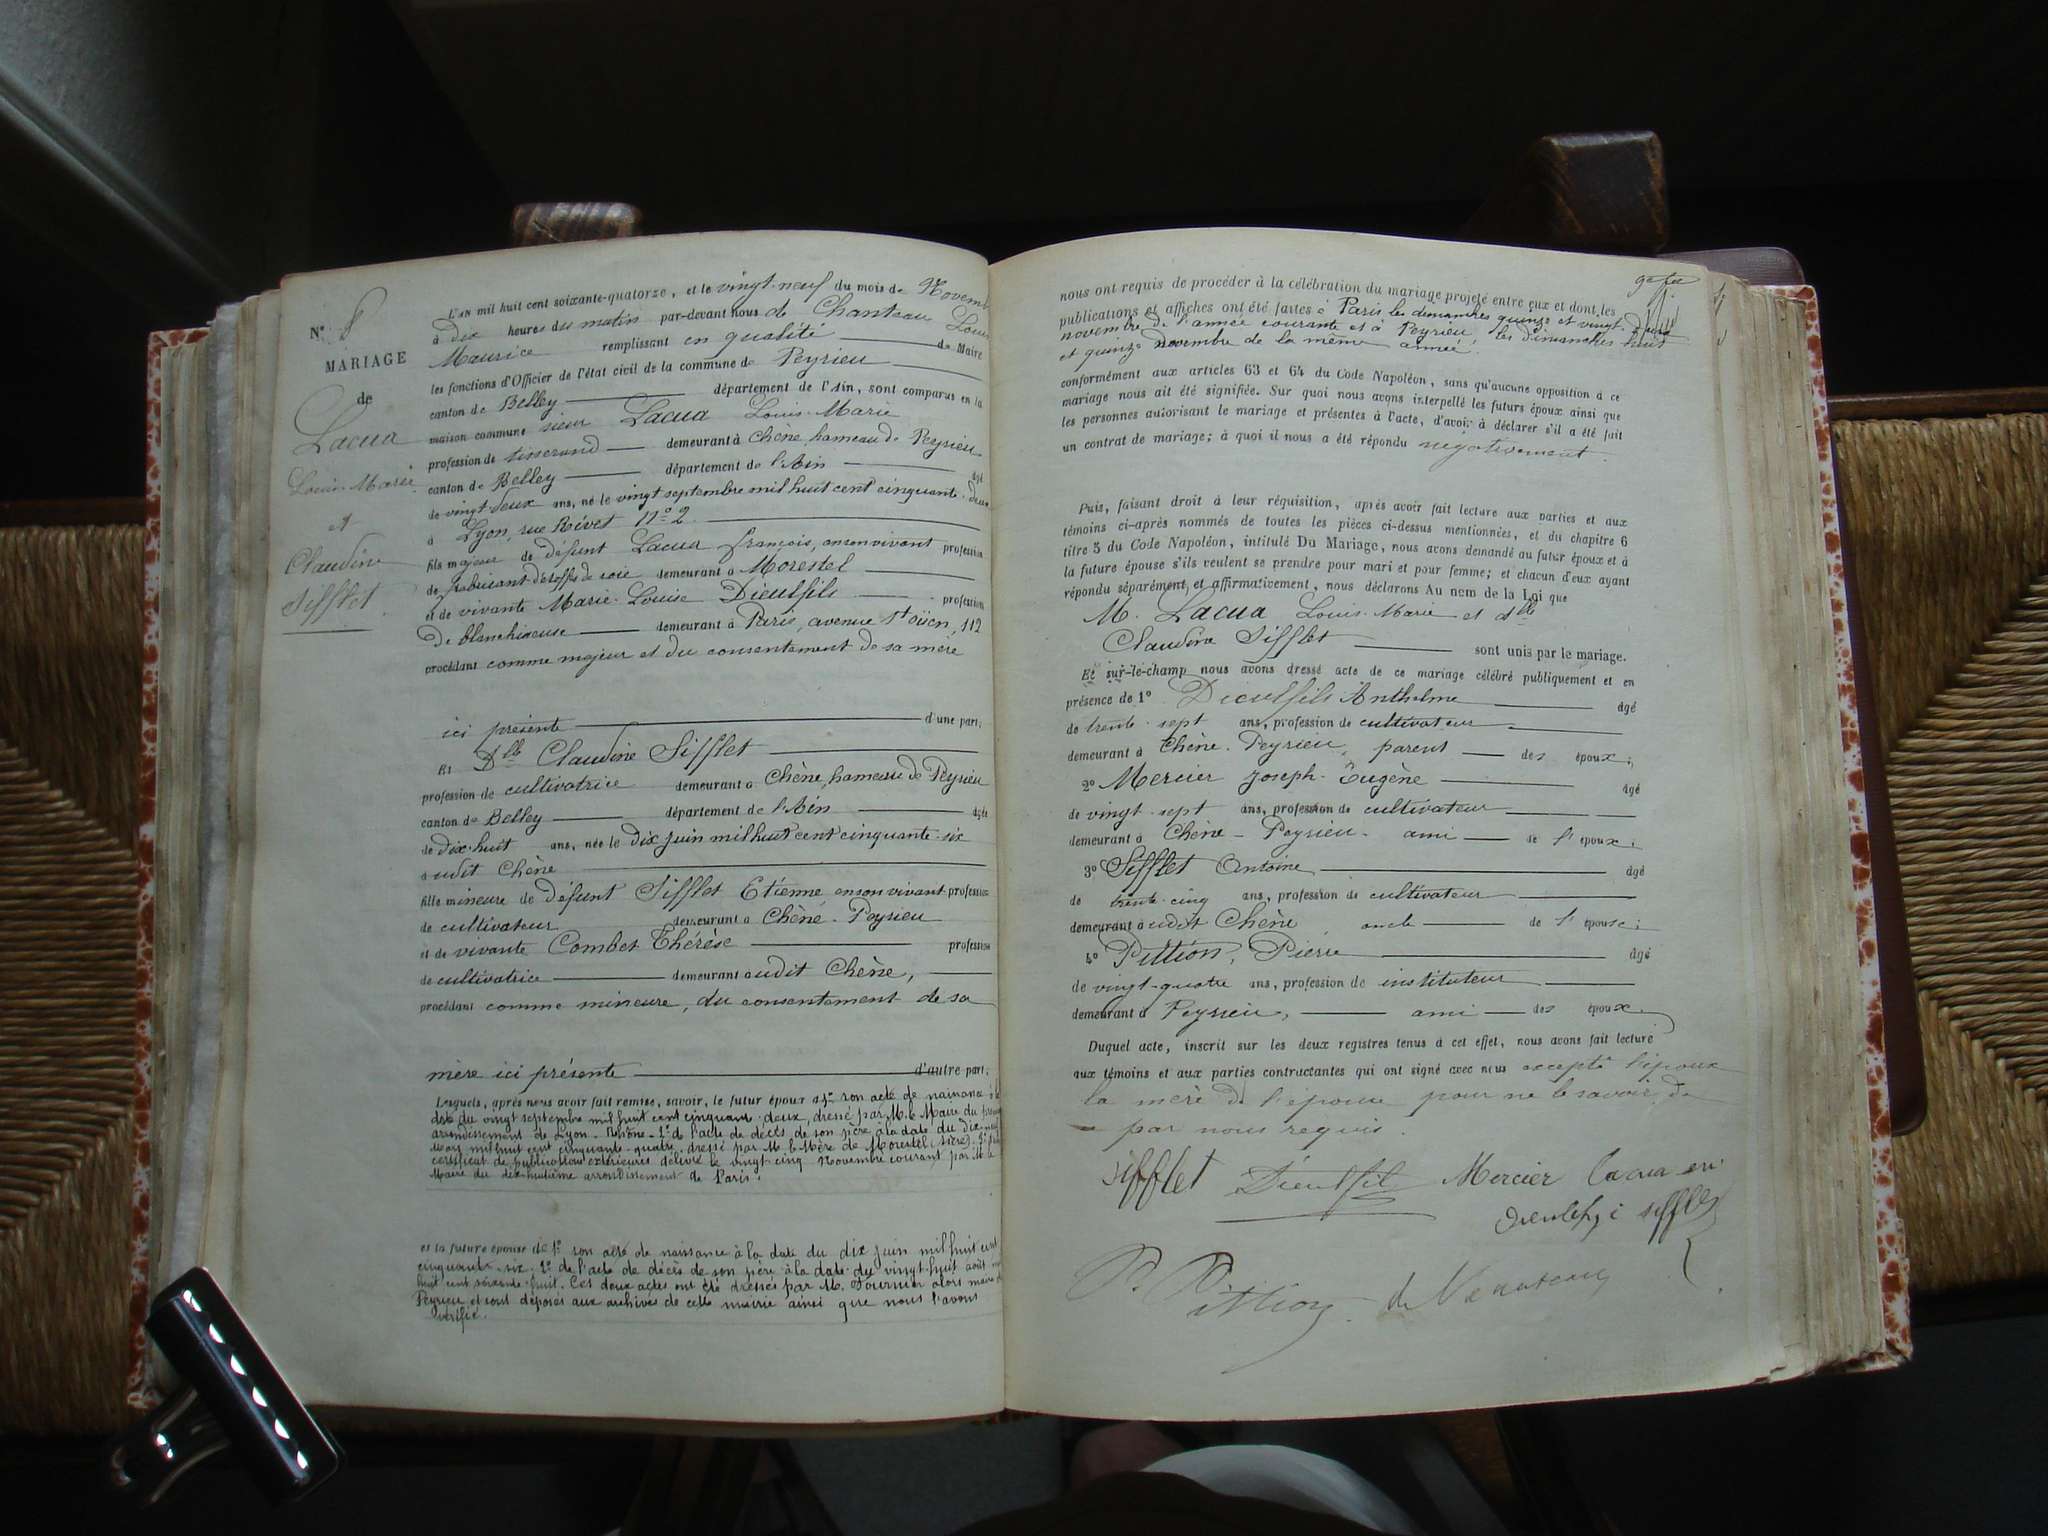 N° 8
MARIAGE
de
Lacua
Louis-Marie
et
Claudine
Sifflet
L'an mil huit cent soixante-quatorze, et le vingt-neuf du mois de Novemb
à dix heures du matin par-devant nous de Chanteau Louis
Maurice remplissant en qualité de Maire
les fonctions d'Officier de l'état civil de la commune de Peyrieu
canton de Belley département de l'Ain, sont comparus en la
maison commune sieur Lacua Louis-Marie
profession de tisserand demeurant à Chêne, hameau de Peyrieu
canton de Belley département de l'Ain âgé
de vingt-deux ans, né le vingt septembre mil huit cent cinquante-deux
à Lyon, rue Rivet n° 2
fils majeur de défunt Lacua françois, en son vivant profession
de fabricant d'étoffes de soie demeurant à Morestel
et de vivante Marie-Louise Dieulfils profession
de blanchisseuse demeurant à Paris, avenue St oüen, 112
procédant comme majeur et du consentement de sa mère
ici présente d'une part;
Et Dlle Claudine Sifflet
profession de cultivatrice demeurant à Chêne, hameau de Peyrieu
canton de Belley département de l'Ain âgée
de dix-huit ans, née le dix juin mil huit cent cinquante-six
audit Chêne
fille mineure de défunt Sifflet Etienne en son vivant profession
de cultivateur demeurant à Chêne-Peyrieu
et de vivante Combet Thérèse profession
de cultivatrice demeurant audit Chêne,
procédant comme mineure, du consentement de sa
mère ici présente d'autre part;
Lesquels, après nous avoir fait remise, savoir, le futur époux 1° son acte de naissance à la
date du vingt septembre mil huit cent cinquante-deux, dressé par M. le Maire du
arrondissement de Lyon-Rhône-2° de l'acte de décès de son père à la date du dix
mars mil huit cent cinquante-quatre, dressé par M. le Mère de Morestel (Isère) 3°
certificat de publications extérieures délivré le vingt-cinq Novembre courant par M. le
Maire du dix-huitième arrondissement de Paris.
et la future épouse de 1° son acte de naissance à la date du dix juin mil huit cent
cinquante-six, 2° de l'acte de décès de son père à la date du vingt-huit août
huit cent soixante-huit. Ces deux actes ont été dressés par M. Fournier alors maire
Peyrieu et sont déposés aux archives de cette mairie ainsi que nous l'avons
vérifié.
nous ont requis de procéder à la célébration du mariage projeté entre eux et dont les
publications et affiches ont été faites à Paris les dimanches quinze et vingt-deux
novembre de l'année courante et à Peyrieu les dimanches huit
et quinze novembre de la même année.
conformément aux articles 63 et 64 du Code Napoléon, sans qu'aucune opposition à ce
mariage nous ait été signifiée. Sur quoi nous avons interpellé les futurs époux ainsi que
les personnes autorisant le mariage et présentes à l'acte, d'avoir à déclarer s'il a été fait
un contrat de mariage; à quoi il nous a été répondu negativement.
Puis, faisant droit à leur réquisition, après avoir fait lecture aux parties et aux
témoins ci-après nommés de toutes les pièces ci-dessus mentionnées, et du chapitre 6
titre 5 du Code Napoléon, intitulé Du Mariage, nous avons demandé au futur époux et à
la future épouse s'ils veulent se prendre pour mari et pour femme; et chacun d'eux ayant
répondu séparément et affirmativement, nous déclarons Au nom de la Loi que
M. Lacua Louis-Marie et dlle
Claudine Sifflet sont unis par le mariage.
Et sur-le-champ nous avons dressé acte de ce mariage célébré publiquement et en
présence de 1° Dieulfils Anthelme âgé
de trente-sept ans, profession de cultivateur
demeurant à Chêne-Peyrieu, parent des époux;
2° Mercier Joseph-Eugène âgé
de vingt-sept ans, profession de cultivateur
demeurant à Chêne-Peyrieu-ami de l'époux;
3° Sifflet Antoine âgé
de trente-cinq ans, profession de cultivateur
demeurant audit Chêne oncle de l'épouse;
4° Pittion, Pierre âgé
de vingt-quatre ans, profession de instituteur
demeurant à Peyrieu, ami des époux.
Duquel acte, inscrit sur les deux registres tenus à cet effet, nous avons fait lecture
aux témoins et aux parties contractantes qui ont signé avec nous excepté l'épouse
la mère de l'épouse pour ne le savoir, de
par nous requis.
Sifflet Dieulfil Mercier Lacua
sifflet
P. Pittion de Chanteau